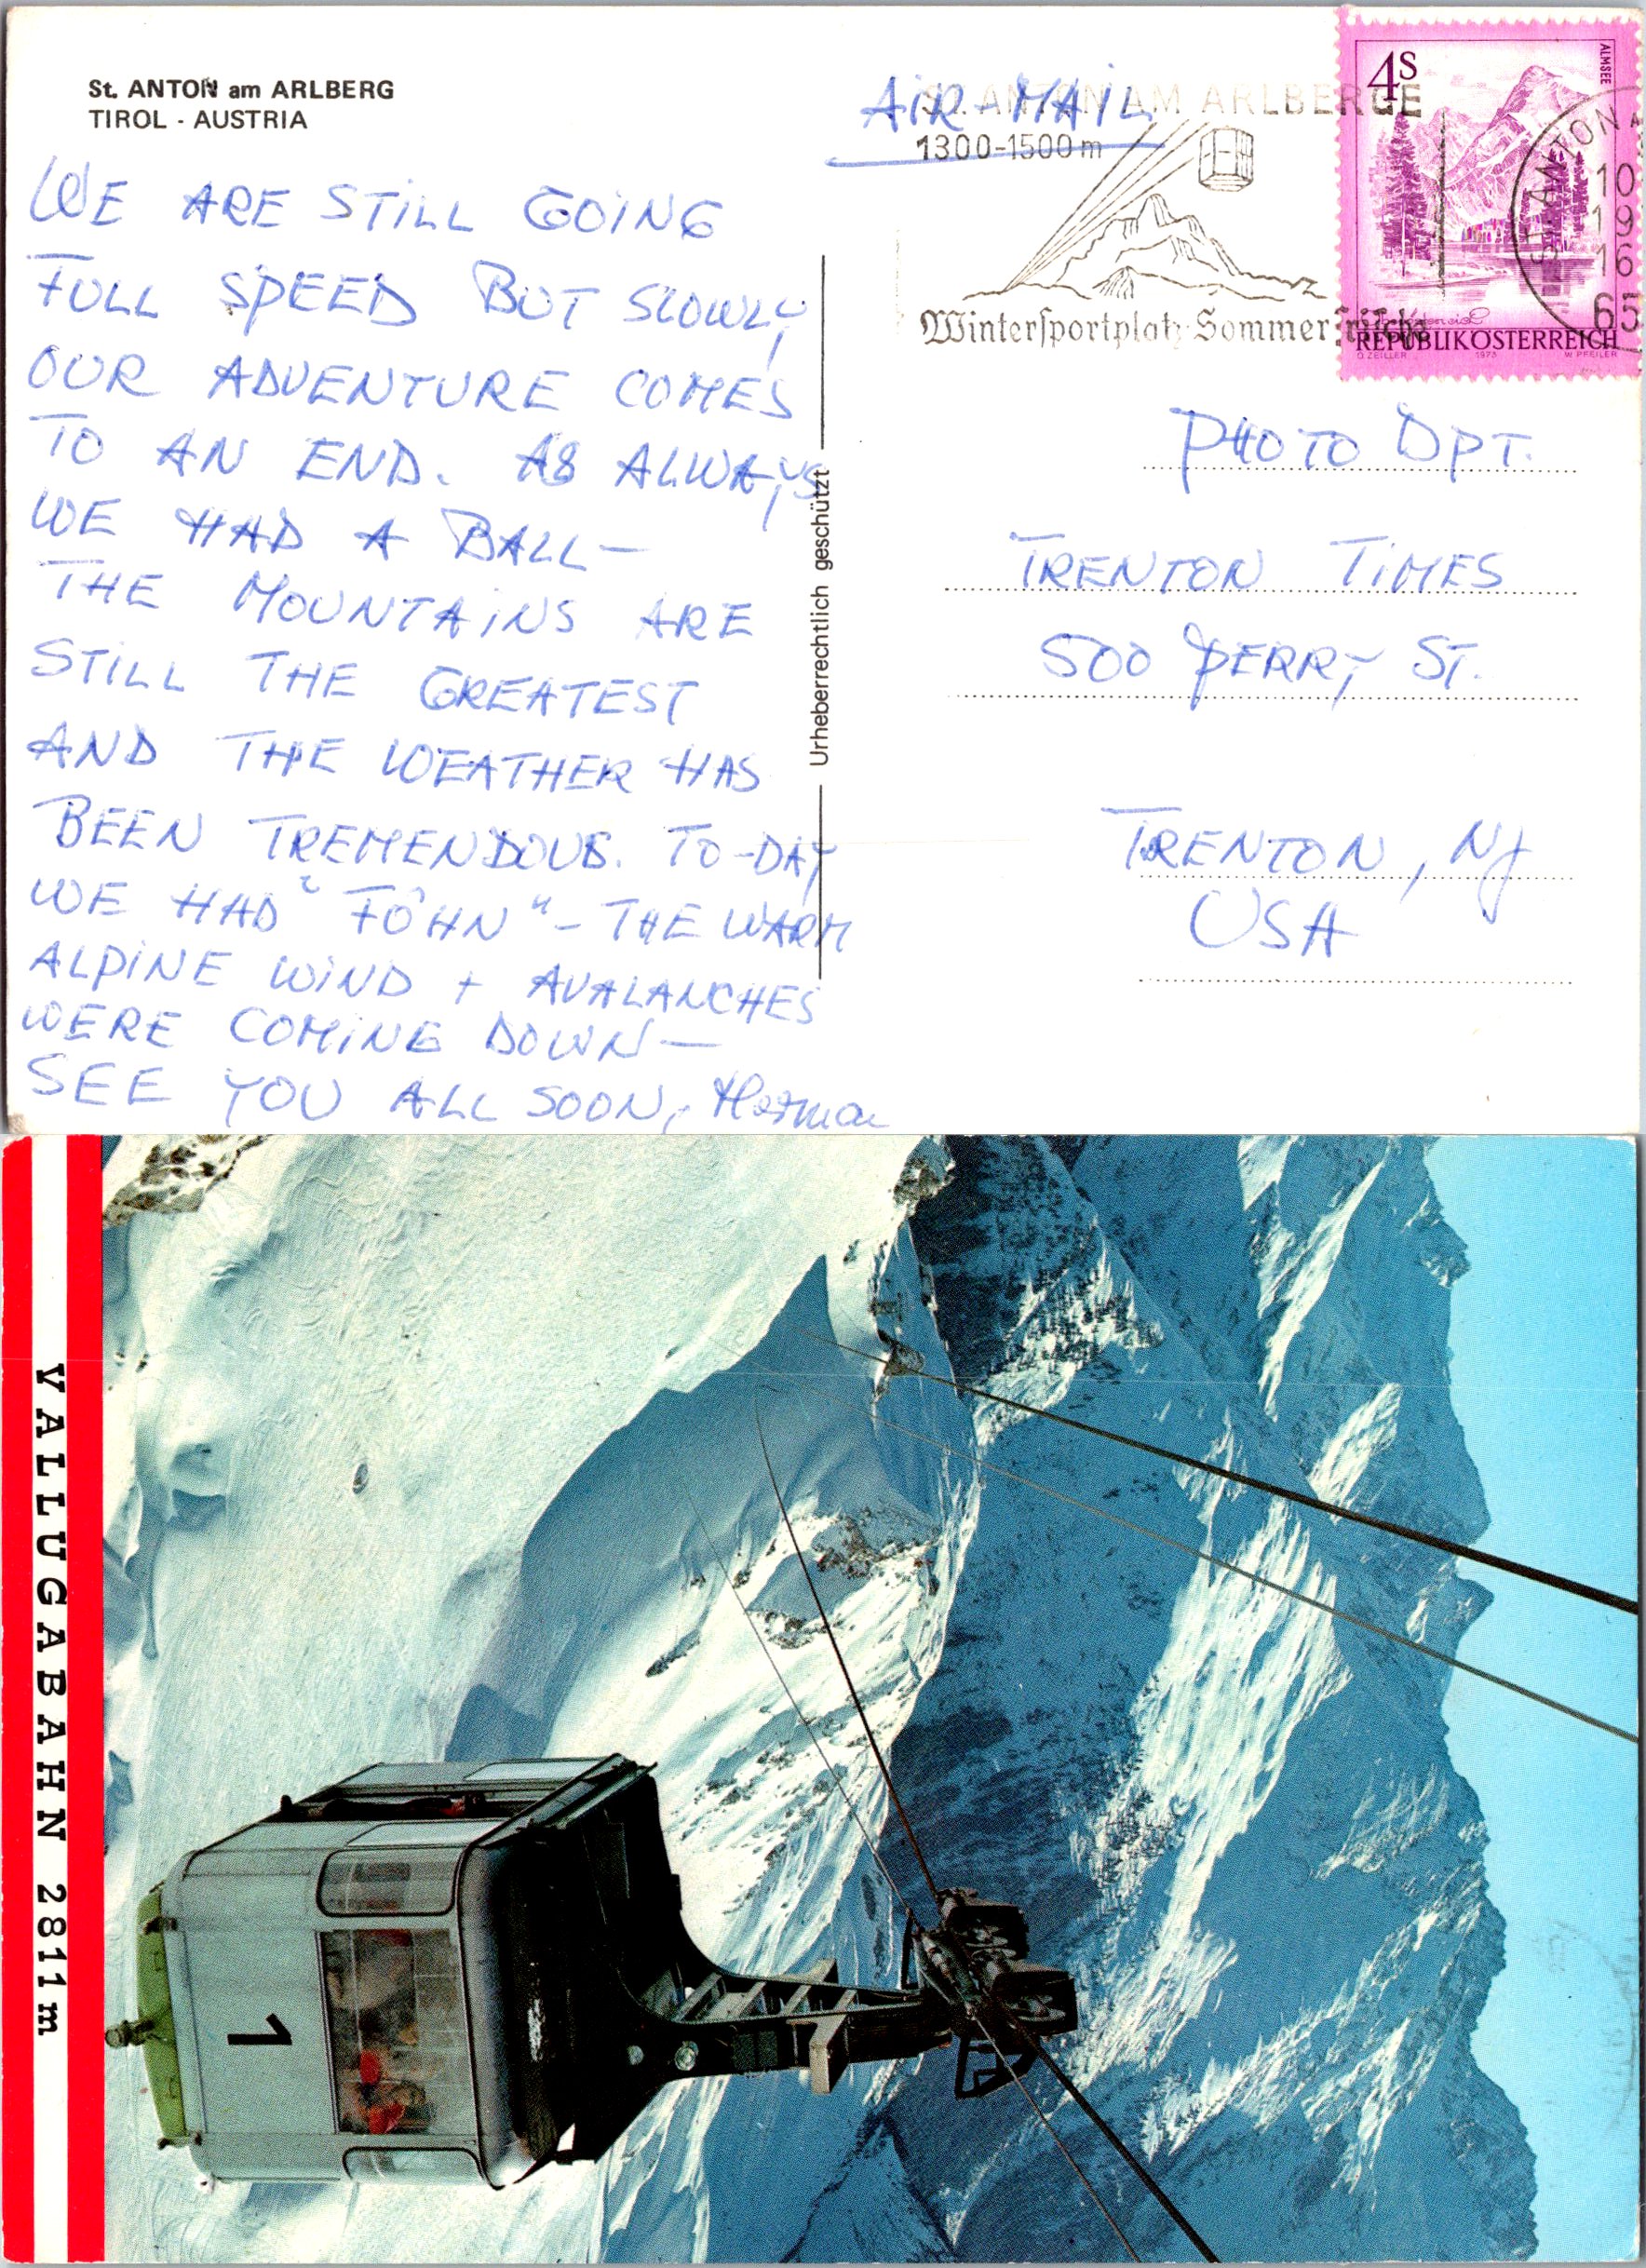 St. ANTON am ARLBERG
TIROL - AUSTRIA
WE ARE STILL GOING
FULL SPEED BUT SLOWLY
OUR ADVENTURE COMES
TO AN END. AS ALWAYS
WE HAD A BALL—
THE MOUNTAINS ARE
STILL THE GREATEST
AND THE WEATHER HAS
BEEN TREMENDOUS. TO-DAY
WE HAD "FÖHN" - THE WARM
ALPINE WIND + AVALANCHES
WERE COMING DOWN—
SEE YOU ALL SOON, Herman
Urheberrechtlich geschützt
AIR MAIL
ST. ANTON AM ARLBERG
1300-1500m
Wintersportplatz·Sommerfrische
4S
ALMSEE
REPUBLIK ÖSTERREICH
O. ZEILLER 1973 W. PFEILER
ST. ANTON A
10
19
16
65
PHOTO DPT.
TRENTON TIMES
500 PERRY ST.
TRENTON, NJ
USA
VALLUGABAHN 2811 m
1